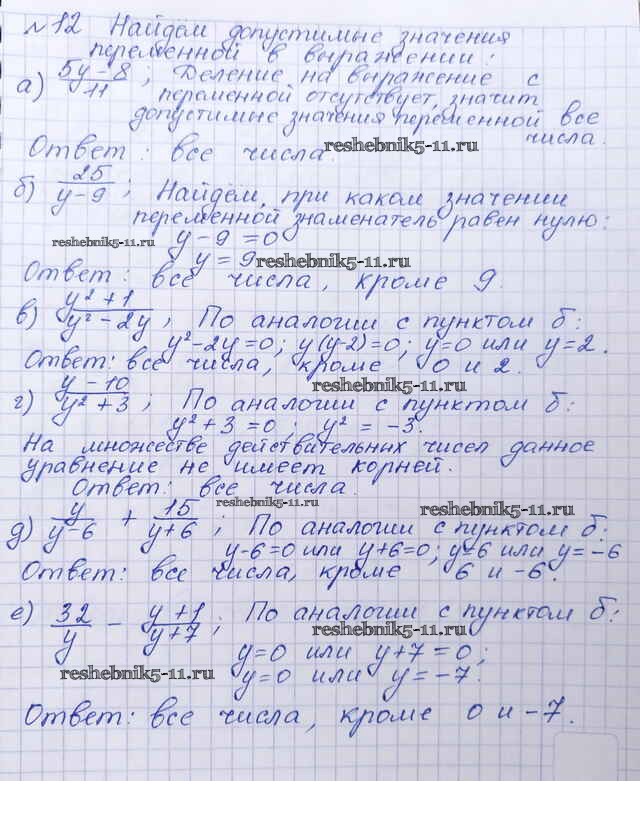 №12 Найдём допустимые значения
переменной в выражении:
а) (5y-8)/11; Деление на выражение с
переменной отсутствует, значит
допустимые значения переменной все
числа.
reshebnik5-11.ru
Ответ: все числа.
б) 25/(y-9); Найдём, при каком значении
переменной знаменатель равен нулю:
reshebnik5-11.ru
y-9=0
y=9
reshebnik5-11.ru
Ответ: все числа, кроме 9.
в) (y²+1)/(y²-2y); По аналогии с пунктом б:
y²-2y=0; y(y-2)=0; y=0 или y=2.
Ответ: все числа, кроме 0 и 2.
reshebnik5-11.ru
г) (y-10)/(y²+3); По аналогии с пунктом б:
y²+3=0; y²=-3.
На множестве действительных чисел данное
уравнение не имеет корней.
Ответ: все числа.
reshebnik5-11.ru
reshebnik5-11.ru
д) y/(y-6) + 15/(y+6); По аналогии с пунктом б:
y-6=0 или y+6=0; y=6 или y=-6
Ответ: все числа, кроме 6 и -6.
е) 32/y - (y+1)/(y+7); По аналогии с пунктом б:
reshebnik5-11.ru
y=0 или y+7=0;
reshebnik5-11.ru
y=0 или y=-7.
Ответ: все числа, кроме 0 и -7.